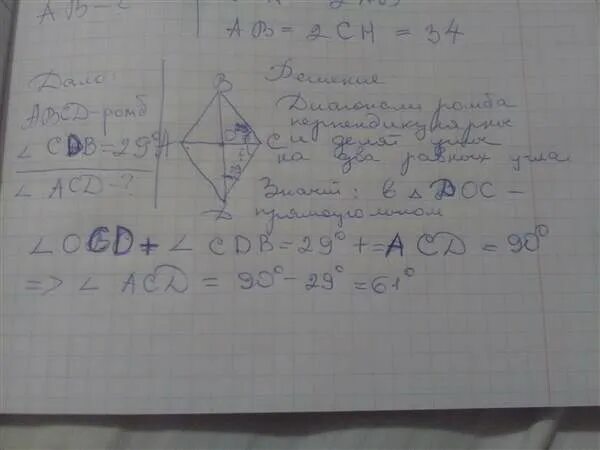 AB-?
AB = 2CH = 34
Дано:
ABCD-ромб
∠ CDB=29°
∠ ACD-?
B
A
O
C
D
Решение
Диагонали ромба
перпендикулярны
и делят углы
на два равных угла
Значит: в △ DOC -
прямоугольном
∠OCD+ ∠ CDB=29°+=ACD = 90°
=> ∠ ACD = 90°-29°=61°